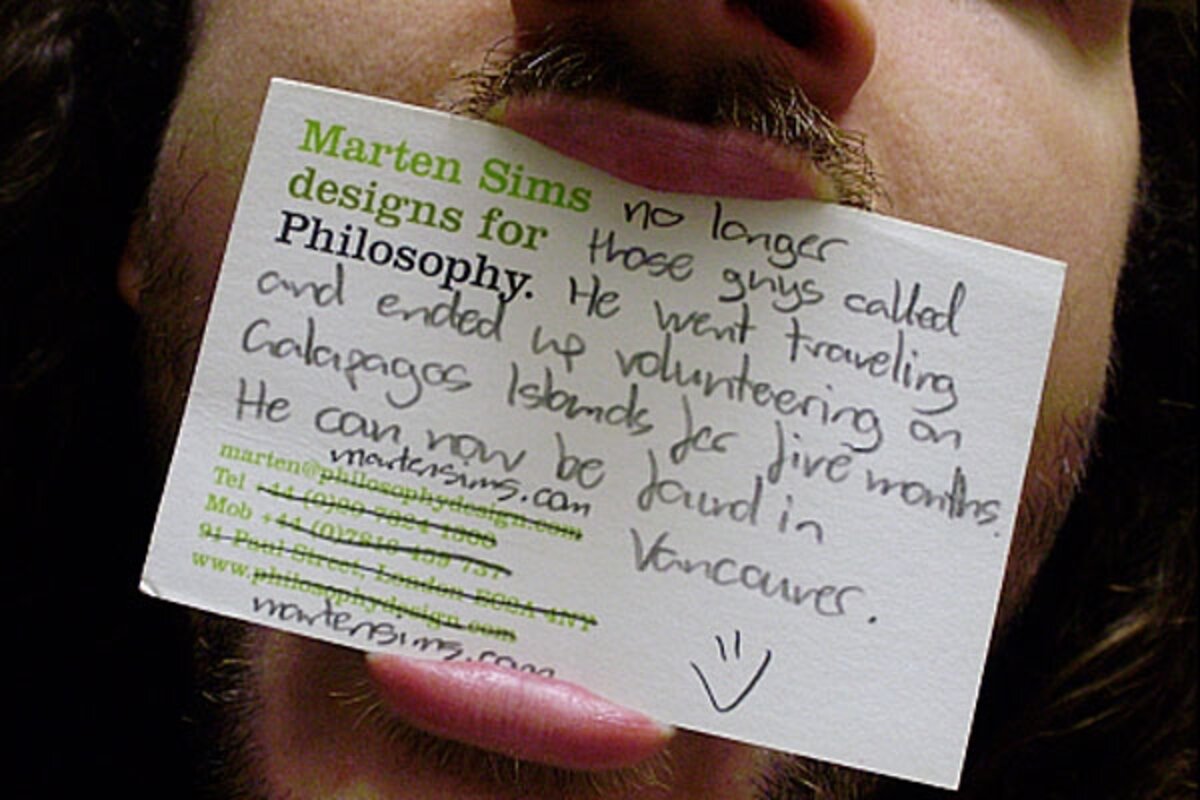 Marten Sims no longer
designs for those guys called
Philosophy. He went traveling
and ended up volunteering on
Galapagos Islands for five months.
He can now be found in
Vancouver.
marten@philosophydesign.com
martensims.com
Tel +44 (0)20 7324 1300
Mob +44 (0)7813 459 737
91 Paul Street, London EC2A 4NY
www.philosophydesign.com
martensims.com